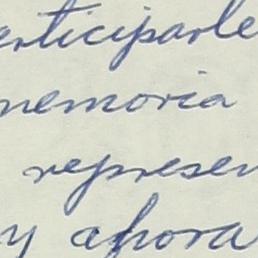 erticiparle
memoria
represen
y ahora